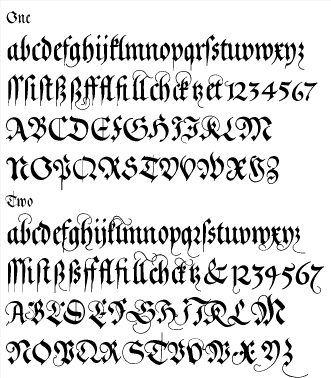 One
abcdefghijklmnopqrſstuvwxyz
ſſſiſtßßffflfillchcktzct1234567
ABCDEFGHIJKLM
NOPQRSTUVWXYZ
Two
abcdefghijklmnopqrſstuvwxyz
ſſſiſtßßffflfillchcktz&1234567
ABCDEFGHIJKLM
NOPQRSTUVWXYZ